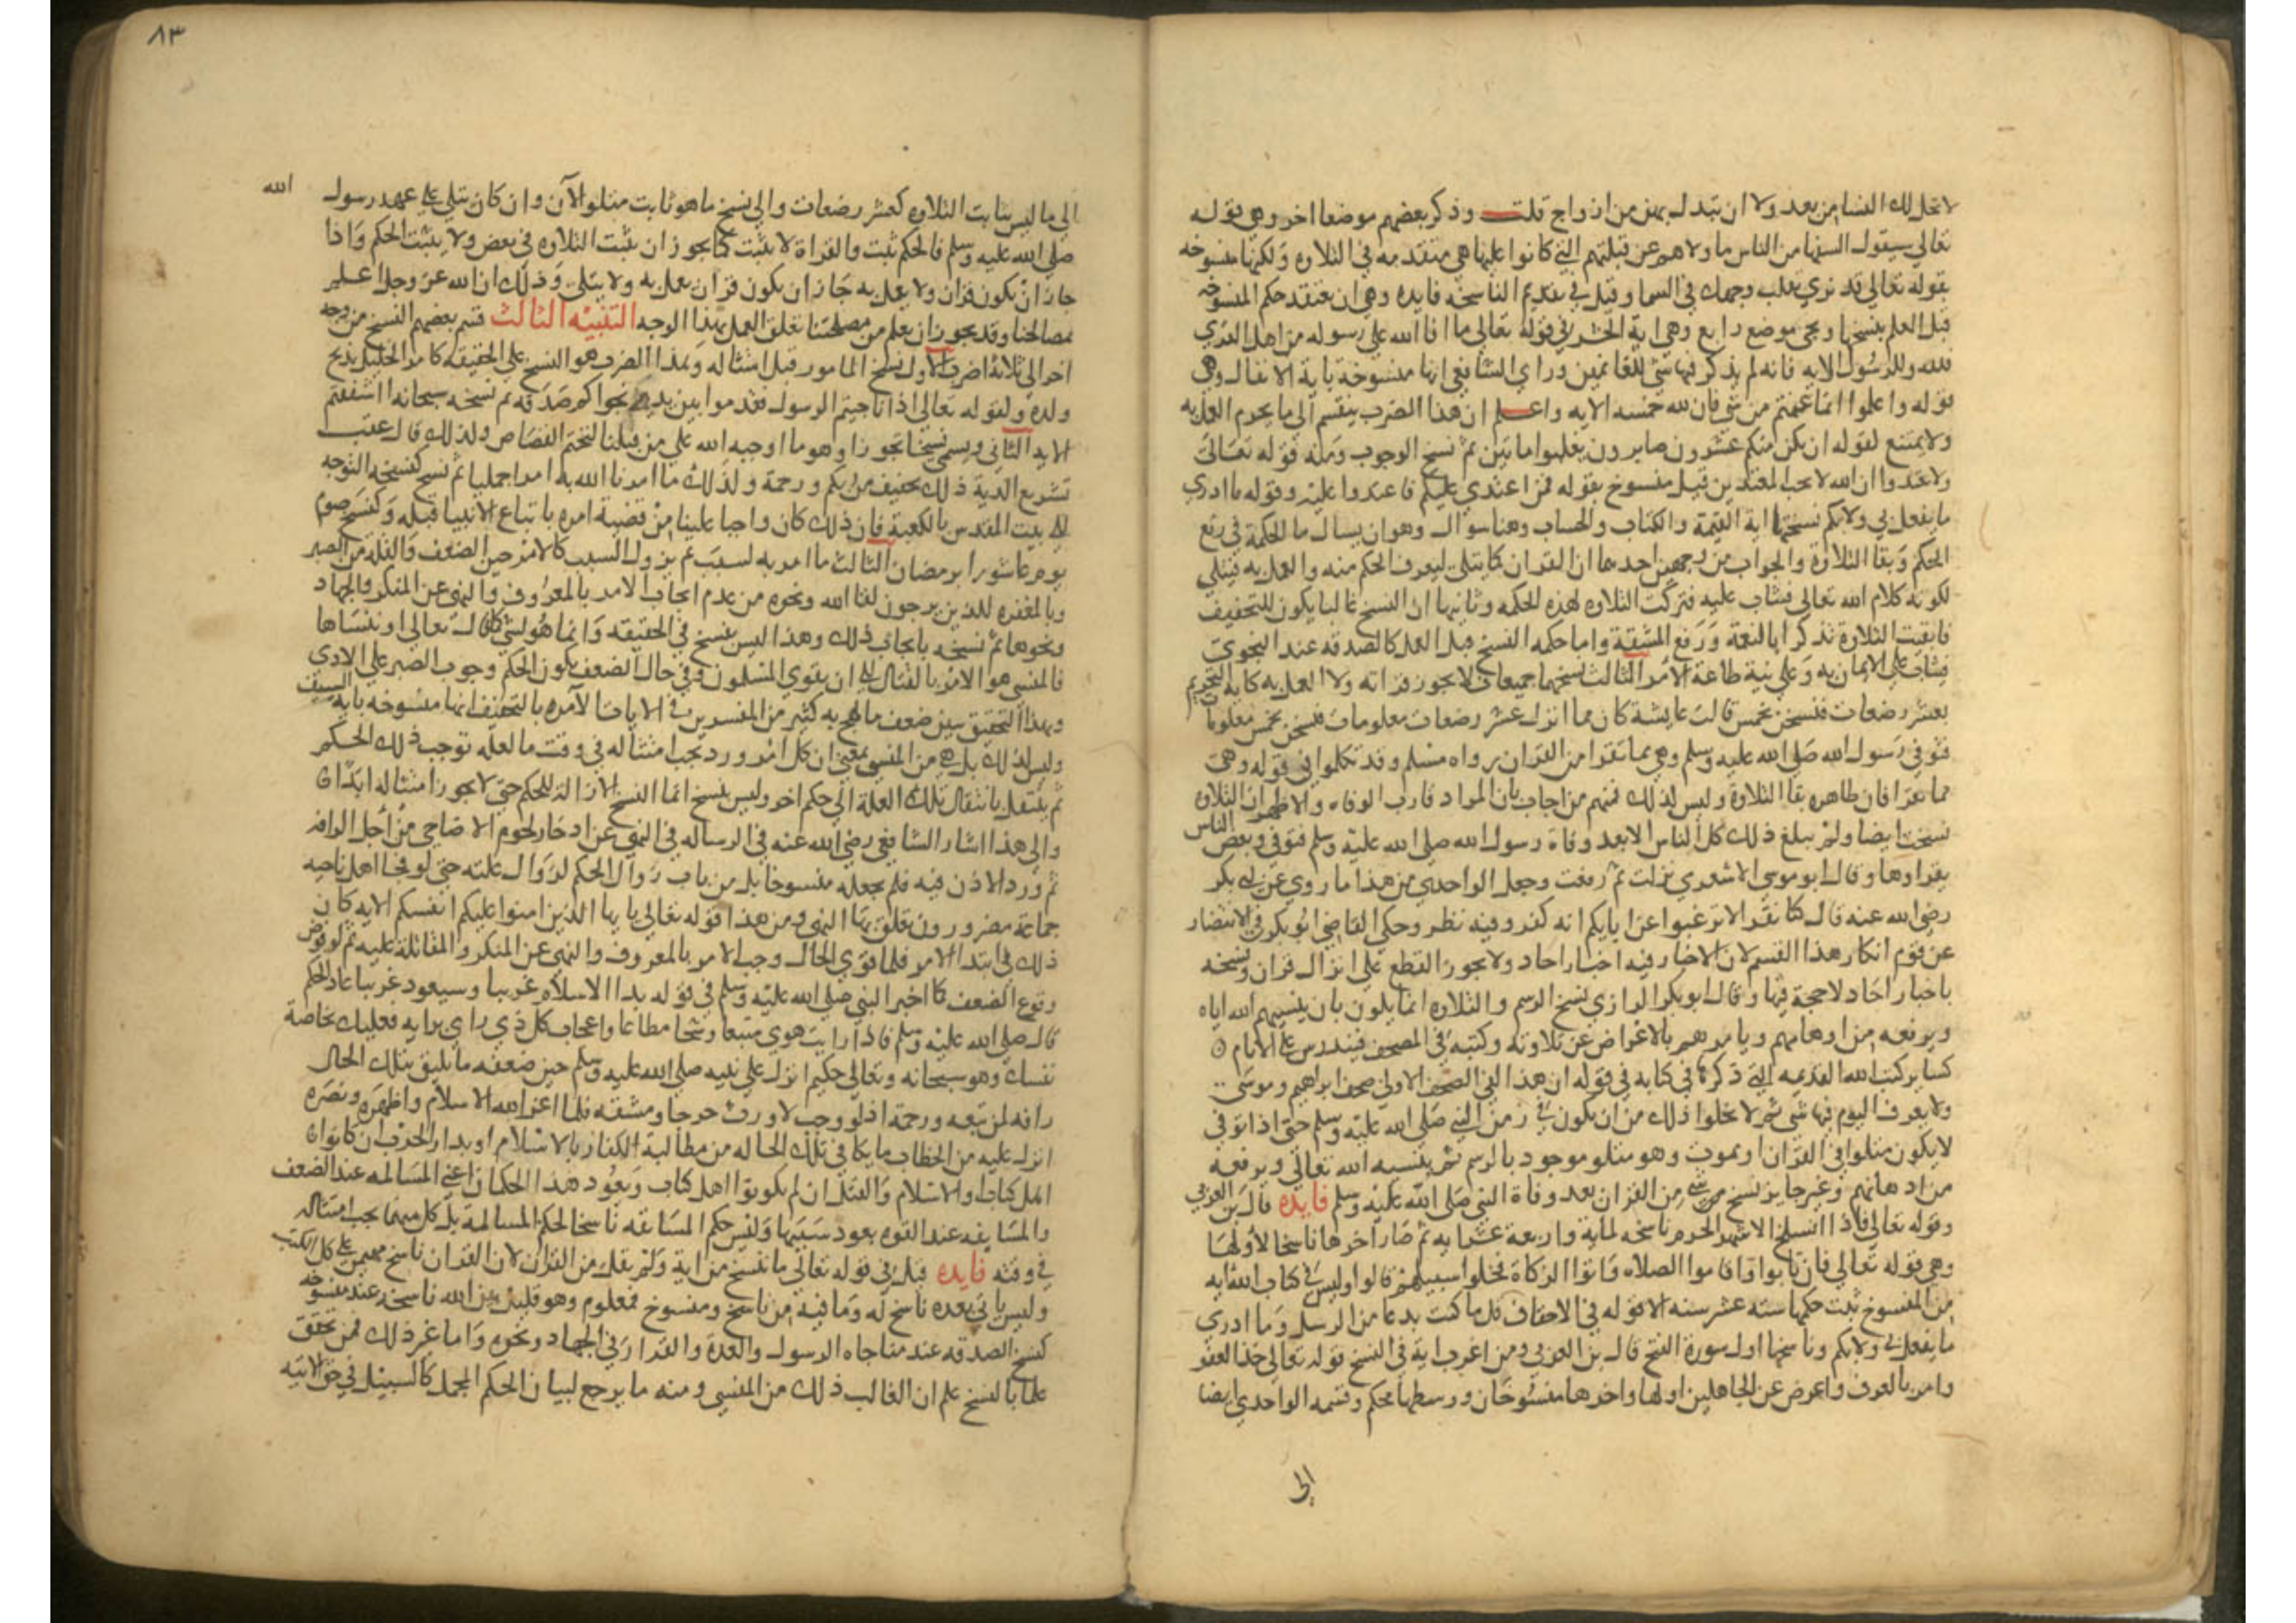 لا تحل لك النسا من بعد ولا ان تبدل بهن من ازواج قلت وذكر بعضهم موضعا اخر وهو قوله
تعالي سيقول السفها من الناس ما ولاهم عن قبلتهم التي كانوا عليها هي متقدمه في التلاوه ولكنها منسوخه
بقوله تعالي قد نري تقلب وجهك في السما وقيل في تقديم الناسخه فايده وهي ان تعتقد حكم المنسوخه
قبل العلم بنسخها ويجي موضع رابع وهي اية الحشر في قوله تعالي ما افا الله علي رسوله من اهل القري
فلله وللرسول الايه فانه لم يذكر فيها شي للغانمين وراي الشافعي انها منسوخة باية الانفال وهي
قوله واعلموا انما غنمتم من شي فان لله خمسه الايه واعلم ان هذا الضرب ينقسم الي ما يحرم العمل به
ولا يمتنع لقوله ان يكن منكم عشرون صابرون يغلبوا مايتين ثم نسخ الوجوب ومنه قوله تعالي
ولا تعتدوا ان الله لا يحب المعتدين قيل منسوخ بقوله فمن اعتدي عليكم فاعتدوا عليه وقوله ما ادري
ما يفعل بي ولا بكم نسختها اية القيمة والكتاب والحساب وهنا سوال وهو ان يسال ما الحكمة في رفع
الحكم وبقا التلاوة والجواب من وجهين احدهما ان القران كما يتلي ليعرف الحكم منه والعمل به فيتلي
لكونه كلام الله تعالي فيثاب عليه فتركت التلاوه لهذه الحكمه وثانيها ان النسخ غالبا يكون للتخفيف
فابقيت التلاوة تذكرا بالنعمة ورفع المشقة واما حكمه النسخ قبل العمل كالصدقه عند النجوي
فيثاب علي الايمان به وعلي نية طاعة الامر الثالث نسخهما جميعا فلا يجوز قراته ولا العمل به كاية التحريم
بعشر رضعات فنسخن بخمس قالت عايشة كان مما انزل عشر رضعات معلومات فنسخن بخمس معلومات
فتوفي رسول الله صلي الله عليه وسلم وهي مما تقرا من القران رواه مسلم وقد تكلموا في قوله وهي
مما تقرا فان ظاهره بقا التلاوة وليس لذلك فمنهم من اجاب بان المراد قارب الوفاه والاظهر ان التلاوه
نسخت ايضا ولم يبلغ ذلك كل الناس الا بعد وفاة رسول الله صلي الله عليه وسلم فتوفي وبعض الناس
يقراوها وقال ابو موسي الاشعري نزلت ثم رفعت وجعل الواحدي من هذا ما روي عن ابي بكر
رضي الله عنه قال كنا نقرا لا ترغبوا عن ابايكم انه كفر وفيه نظر وحكي القاضي ابو بكر في الانتصار
عن قوم انكار هذا القسم لان الاخبار فيه اخبار احاد ولا يجوز القطع علي انزال قران ونسخه
باخبار احاد لا حجة فيها وقال ابو بكر الرازي نسخ الرسم والتلاوه انما يكون بان ينسيهم الله اياه
ويرفعه من اوهامهم ويامرهم بالاعراض عن تلاوته وكتبه في المصحف فيندرس علي الايام
كساير كتب الله القديمه التي ذكرها في كتابه في قوله ان هذا لفي الصحف الاولي صحف ابراهيم وموسي
ولا يعرف اليوم فيها شي ثم لا يخلوا ذلك من ان يكون في زمن النبي صلي الله عليه وسلم حتي اذا توفي
لا يكون متلوا في القران او يموت وهو متلو موجود بالرسم ثم ينسيه الله تعالي ويرفعه
من اذهانهم وغير جايز نسخ شي من القران بعد وفاة النبي صلي الله عليه وسلم فايده قال بن العربي
وقوله تعالي فاذا انسلخ الاشهر الحرم ناسخه لماية واربعة عشر ايه ثم صار اخرها ناسخا لاولها
وهي قوله تعالي فان تابوا واقاموا الصلاه واتوا الزكاة فخلوا سبيلهم قالوا وليس في كتاب الله ايه
من المنسوخ ثبت حكمها سته عشر سنه الا قوله في الاحقاف قل ما كنت بدعا من الرسل وما ادري
ما يفعل بي ولا بكم وناسخها اول سورة الفتح قال بن العربي ومن اغرب اية في النسخ قوله تعالي خذ العفو
وامر بالعرف واعرض عن الجاهلين اولها واخرها منسوخان ووسطها محكم وقسمه الواحدي ايضا
الي
٨٣
الي ما ليس بثابت التلاوه كعشر رضعات والي نسخ ما هو ثابت متلو الآن وان كان يتلي علي عهد رسول الله
صلي الله عليه وسلم فالحكم ثبت والقراة لا تثبت كما يجوز ان تثبت التلاوه في بعض ولا يثبت الحكم واذا
جاز ان يكون قران ولا يعمل به جاز ان يكون قران يعمل به ولا يتلي وذلك ان الله عز وجل اعلم
بمصالحنا وقد يجوز ان يعلم من مصلحتنا تعلق العمل بهذا الوجه التنبيه الثالث قسم بعضهم النسخ من وجه
اخر الي ثلاثة اضرب الاول نسخ المامور قبل امتثاله وهذا الضرب هو النسخ علي الحقيقه كامر الخليل بذبح
ولده ولقوله تعالي اذا ناجيتم الرسول فقدموا بين يدي نجواكم صدقه ثم نسخه سبحانه ااشفقتم
الايه الثاني ويسمي نسخا تجوزا وهو ما اوجبه الله علي من قبلنا كحتم القصاص ولذلك قال عقب
تشريع الدية ذلك تخفيف من ربكم ورحمة ولذلك ما امرنا الله به امرا جمليا ثم نسخ كنسخه التوجه
الي بيت المقدس بالكعبة فان ذلك كان واجبا علينا من قضية امره باتباع الانبيا قبله وكنسخ صوم
يوم عاشورا برمضان الثالث ما امر به لسبب ثم يزول السبب كالامر حين الضعف والقلة من الصبر
وبالمغفره للذين يرجون لقا الله ونحوه من عدم ايجاب الامر بالمعروف والنهي عن المنكر والجهاد
ونحوها ثم نسخه بايجاب ذلك وهذا ليس بنسخ في الحقيقه وانما هو نسي كما قال تعالي او ننساها
فالمنسي هو الامر بالقتال الي ان يقوي المسلمون وفي حال الضعف يكون الحكم وجوب الصبر علي الاذي
وبهذا التحقيق تبين ضعف ما لهج به كثير من المفسرين في الايات الآمره بالتخفيف انها منسوخه باية السيف
وليس كذلك بل هي من المنسي بمعني ان كل امر ورد يجب امتثاله في وقت ما لعله توجب ذلك الحكم
ثم ينتقل بانتقال تلك العلة الي حكم اخر وليس بنسخ انما النسخ الازالة للحكم حتي لا يجوز امتثاله ابدا
والي هذا اشار الشافعي رضي الله عنه في الرساله في النهي عن ادخار لحوم الاضاحي من اجل الدافه
ثم ورد الاذن فيه فلم يجعله منسوخا بل من باب زوال الحكم لزوال علته حتي لو فجا اهل ناحيه
جماعة مضرورون تعلق بها النهي ومن هذا قوله تعالي يا يها الذين امنوا عليكم انفسكم الايه كان
ذلك في ابتدا الامر فلما قوي الحال وجب الامر بالمعروف والنهي عن المنكر والمقاتلة عليه ثم لو فرض
وقوع الضعف كما اخبر النبي صلي الله عليه وسلم في قوله بدا الاسلام غريبا وسيعود غريبا عاد الحكم
قال صلي الله عليه وسلم فاذا رايت هوي متبعا وشحا مطاعا واعجاب كل ذي راي برايه فعليك بخاصة
نفسك وهو سبحانه وتعالي حكيم انزل علي نبيه صلي الله عليه وسلم حين ضعفه ما يليق بتلك الحال
رافه لمن تبعه ورحمة اذ لو وجب لاورث حرجا ومشقه فلما اعز الله الاسلام واظهره ونصره
انزل عليه من الخطاب ما يكافي تلك الحاله من مطالبة الكفار بالاسلام او بدار الحرب ان كانوا
اهل كتاب والاسلام والقتل ان لم يكونوا اهل كتاب ويعود هذا الحكمان اعني المسالمه عند الضعف
والمسايفه عند القوه بعود سببها وليس حكم المسايفه ناسخا لحكم المسالمة بل كل منهما يجب امتثاله
في وقته فايده قيل في قوله تعالي ما ننسخ من اية ولم يقل من القران لان القران ناسخ مهيمن علي كل الكتب
وليس ياتي بعده ناسخ له وما فيه من ناسخ ومنسوخ فمعلوم وهو قليل بين الله ناسخه عند منسوخه
كنسخ الصدقه عند مناجاه الرسول والعدة والفرار في الجهاد ونحوه واما غير ذلك فمن تحقق
علما بالنسخ علم ان الغالب ذلك من المنسي ومنه ما يرجع لبيان الحكم المجمل كالسبيل في حق الاتيه